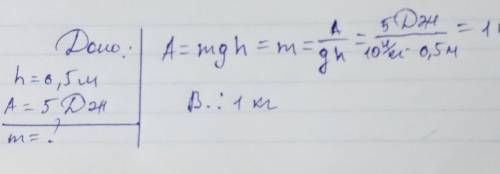 Дано:
h=0,5м
A = 5 Дж
m = ?
A = mgh = m = A/gh = 5 Дж/10 н/кг · 0,5 м = 1
В.: 1 кг